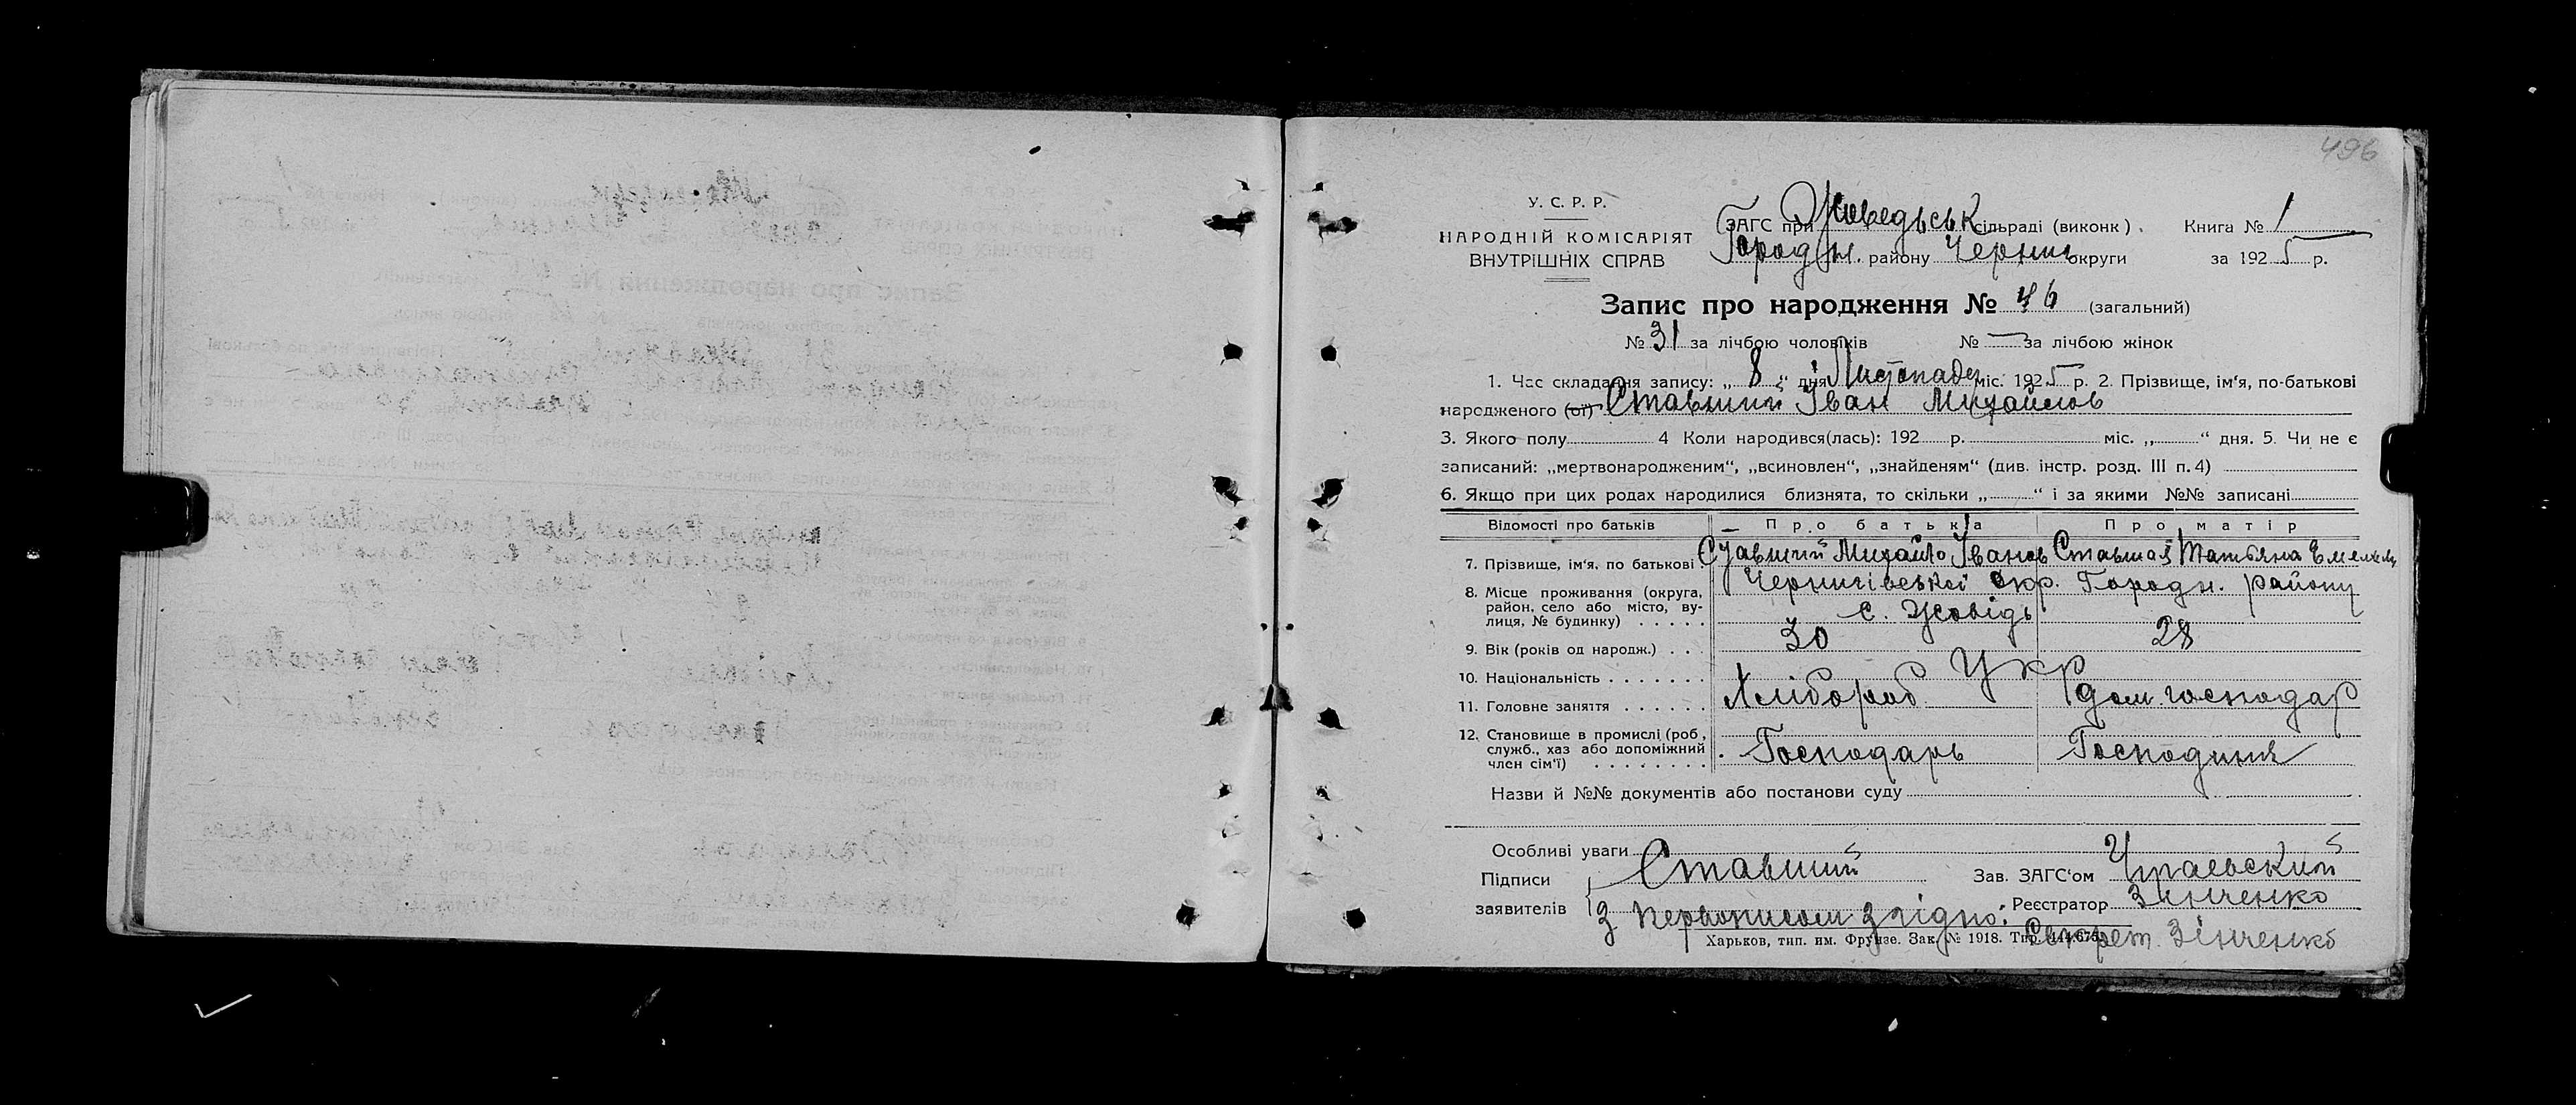 496
У. С. Р. Р.
НАРОДНІЙ КОМІСАРІЯТ
ВНУТРІШНІХ СПРАВ
ЗАГС при Жоведьськ сільраді (виконк). Книга № 1
Городн. району Черниг округи за 1925 р.
Запис про народження № 46 (загальний)
№ 31 за лічбою чоловіків № — за лічбою жінок
1. Час складання запису: „ 8 “ дня Листопада міс. 1925 р. 2. Прізвище, ім'я, по-батькові
народженого (ої) Ставший Іван Михайлов
3. Якого полу 4 Коли народився(лась): 192 р. міс. „ “ дня. 5. Чи не є
записаний: „мертвонародженим“, „всиновлен“, „знайденям“ (див. інстр. розд. III п. 4)
6. Якщо при цих родах народилися близнята, то скільки „ “ і за якими №№ записані
Відомості про батьків Про батька Про матір
7. Прізвище, ім'я, по батькові Ставший Михайло Іванов Ставшая Татьяна Емельян
8. Місце проживання (округа, район, село або місто, вулиця, № будинку) Чернигівської окр. Городн. району
с. Жовідь
9. Вік (років од народж.) 30 28
10. Національність Укр
11. Головне заняття Хлібороб дом. господар
12. Становище в промислі (роб., служб., хаз або допоміжний член сім'ї) Господарь Господиня
Назви й №№ документів або постанови суду
Особливі уваги
Підписи Ставший Зав. ЗАГС'ом
заявителів Реєстратор Зінченко
З первописом згідно: Секрет. Зінченко
Харьков, тип. им. Фрунзе. Зак. № 1918. Тир.